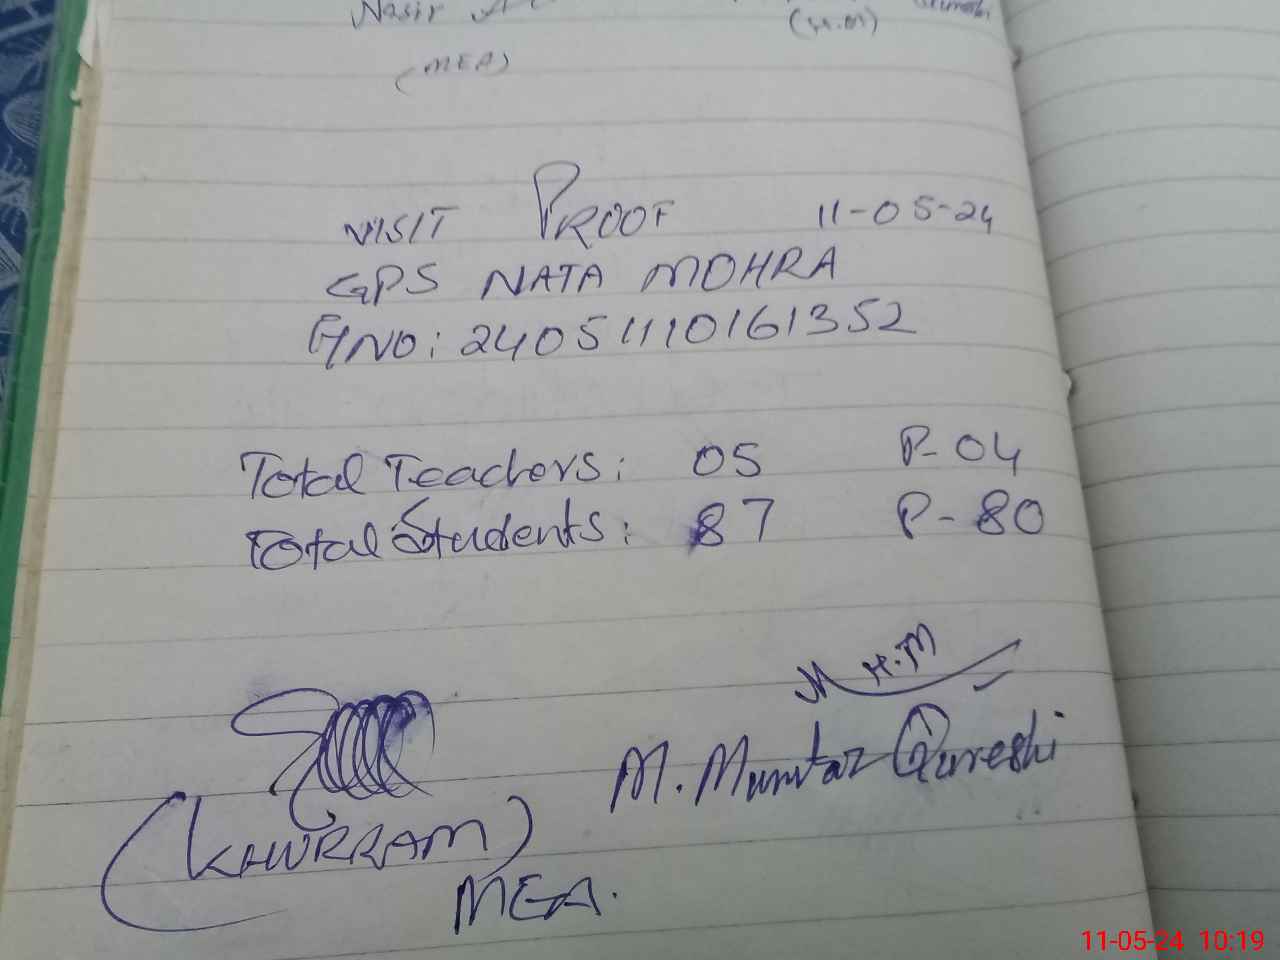 Nasir
(H.M)
(MEA)
VISIT PROOF 11-05-24
GPS NATA MOHRA
NO: 240511110161352
Total Teachers: 05 P-04
Total Students: 87 P-80
H.M
M. Mumtaz Qureshi
(KHURRAM)
MEA.
11-05-24 10:19